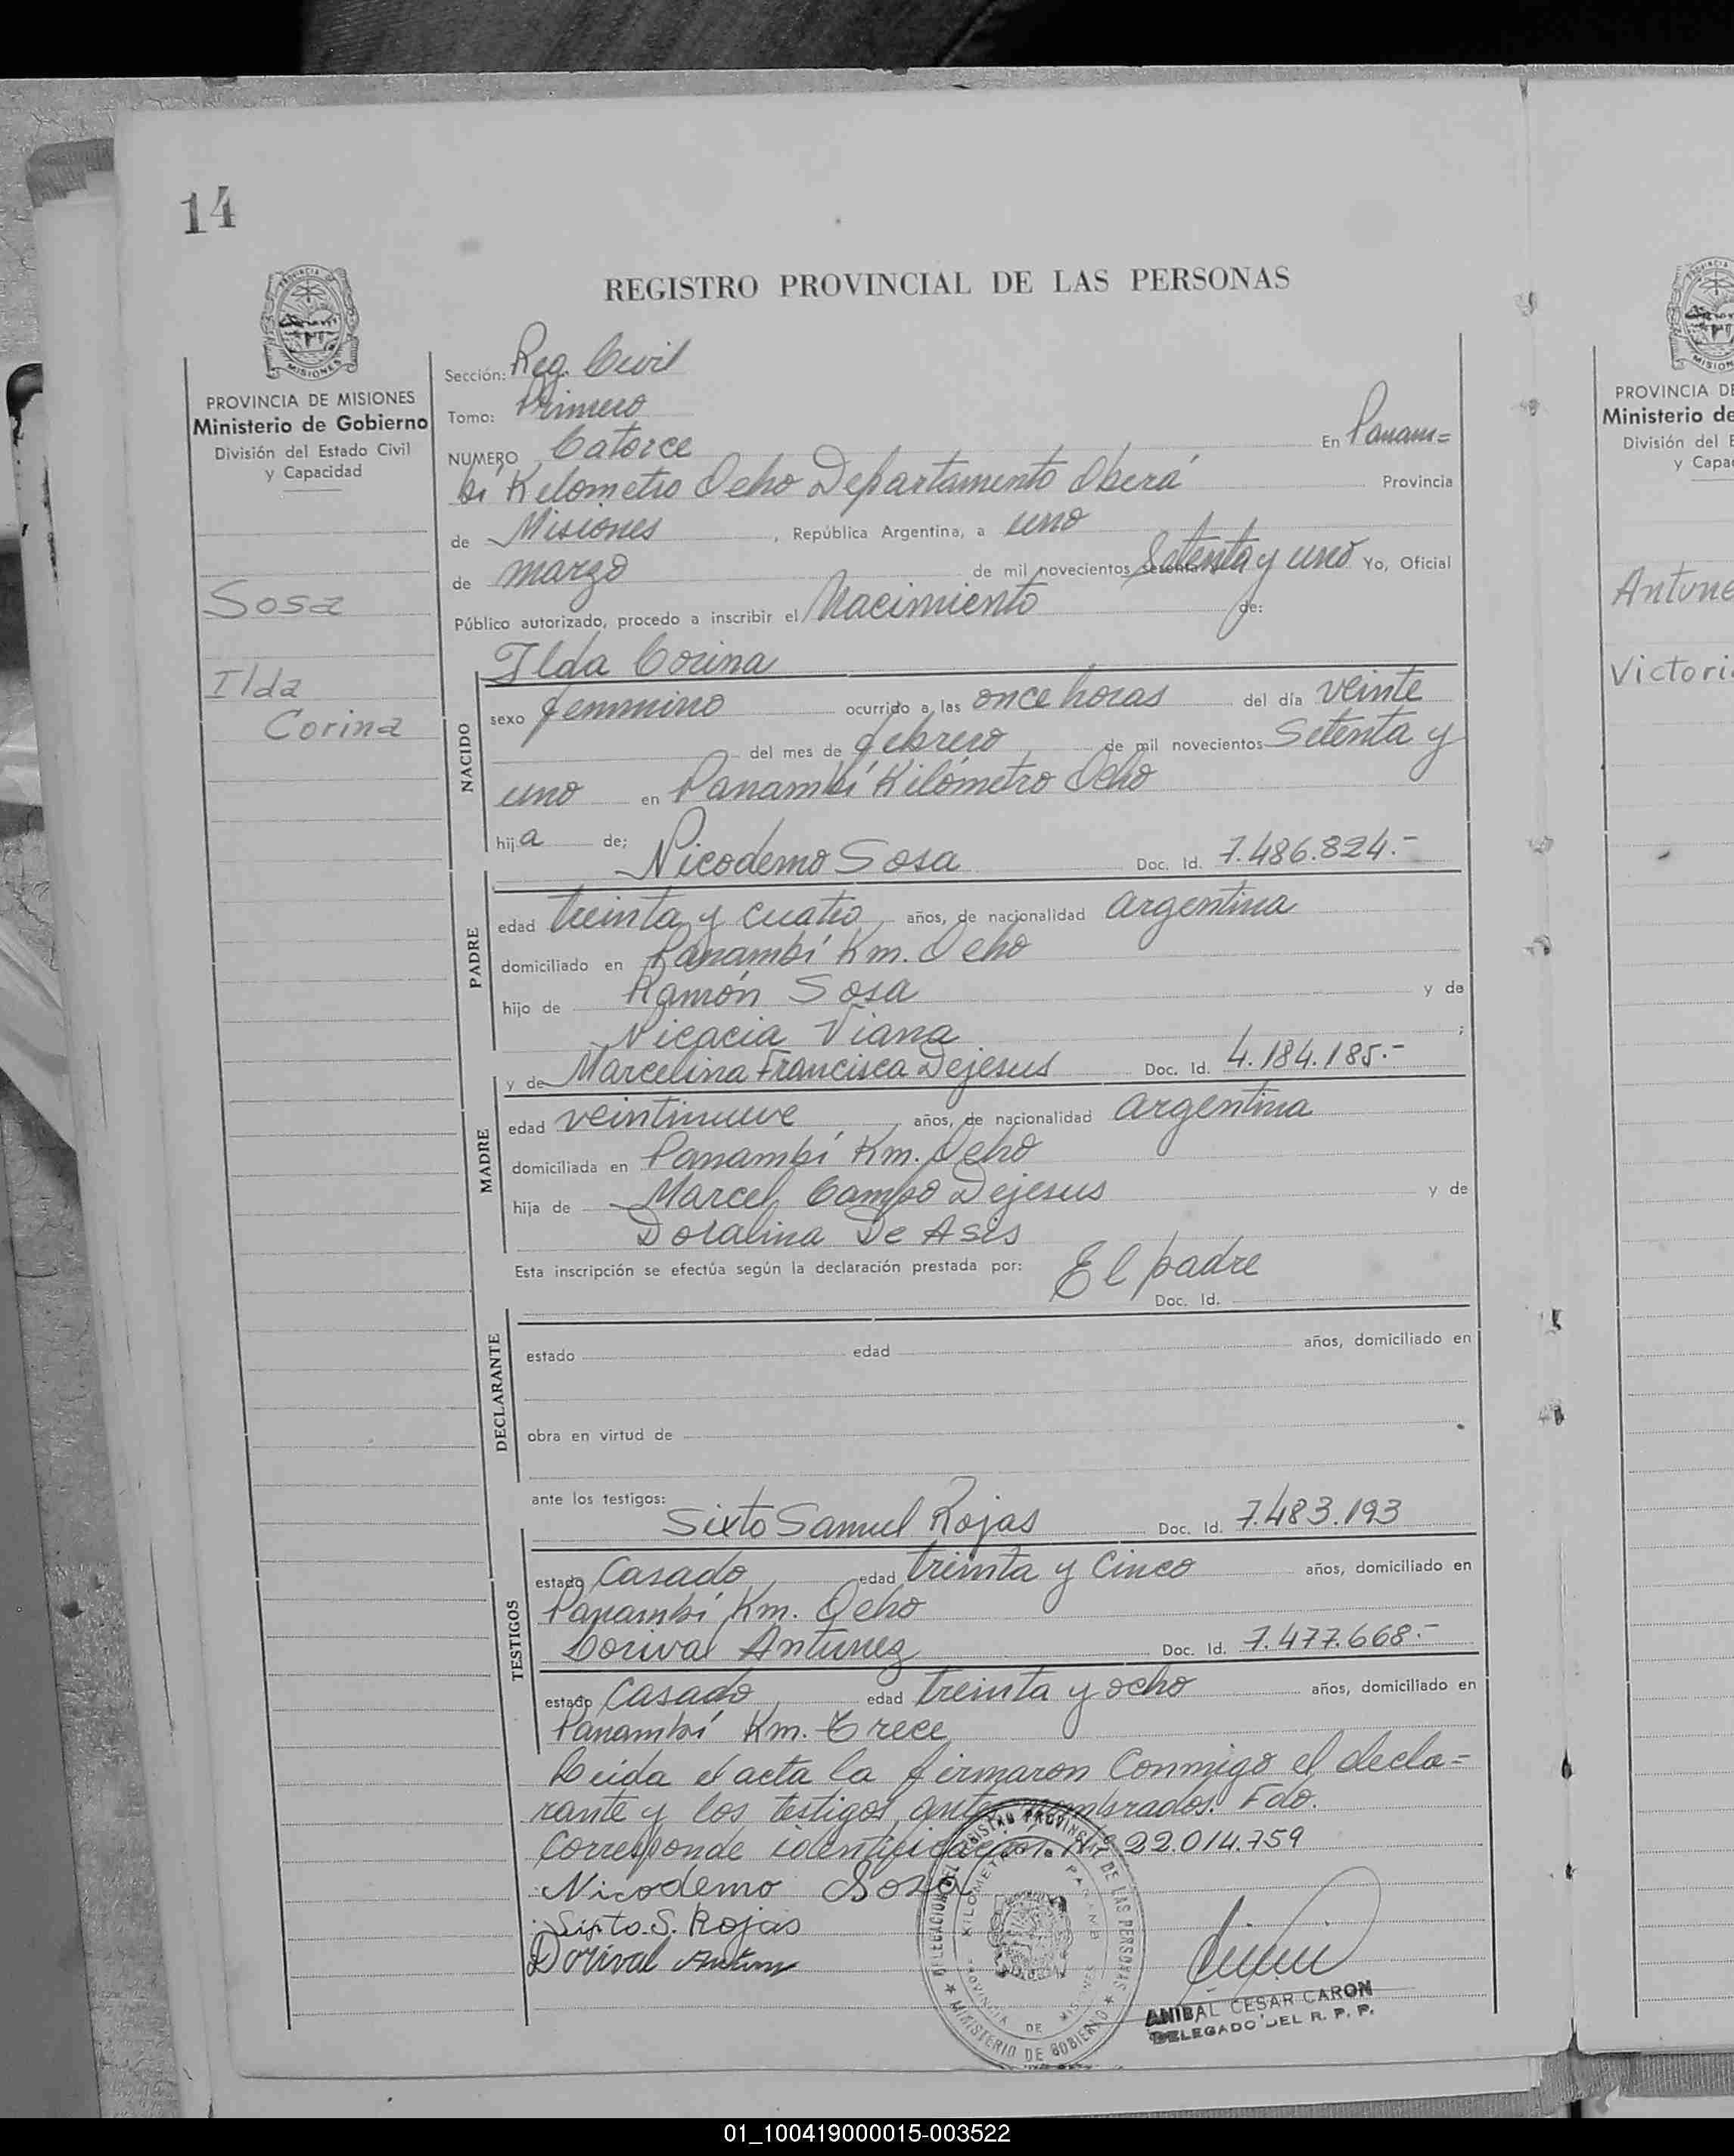 14
REGISTRO PROVINCIAL DE LAS PERSONAS
PROVINCIA DE MISIONES
Ministerio de Gobierno
División del Estado Civil
y Capacidad
Sosa
Ilda
Corina
Sección: Reg. Civil
Tomo: Primero
NUMERO Catorce En Panam=
bí Kilometro Ocho Departamento Oberá Provincia
de Misiones, República Argentina, a uno
de marzo de mil novecientos setenta y uno Yo, Oficial
Público autorizado, procedo a inscribir el Nacimiento de:
NACIDO
Ilda Corina
sexo femenino ocurrido a las once horas del día veinte
del mes de febrero de mil novecientos Setenta y
uno en Panambí Kilómetro Ocho
hija de;
PADRE
Nicodemo Sosa Doc. Id. 7.486.824.-
edad treinta y cuatro años, de nacionalidad argentina
domiciliado en Panambí Km. Ocho
hijo de Ramón Sosa y de
Nicacia Viana;
MADRE
y de Marcelina Francisca Dejesus Doc. Id. 4.184.185.-
edad veintinueve años, de nacionalidad argentina
domiciliada en Panambí Km. Ocho
hija de Marcel Campo Dejesus y de
Doralina De Asis
Esta inscripción se efectúa según la declaración prestada por: El padre
Doc. Id.
DECLARANTE
estado edad años, domiciliado en
obra en virtud de
ante los testigos:
TESTIGOS
Sixto Samuel Rojas Doc. Id. 7.483.193
estado Casado edad treinta y Cinco años, domiciliado en
Panambí Km. Ocho
Dorival Antunez Doc. Id. 7.477.668.-
estado Casado edad treinta y ocho años, domiciliado en
Panambí Km. Trece
Leida el acta la firmaron Conmigo el decla=
rante y los testigos antes nombrados. Fdo.
Corresponde identificación Nº 22.014.759
Nicodemo Sosa
Sixto. S. Rojas
Dorival
DELEGACION DEL REGISTRO PROVINCIAL DE LAS PERSONAS
MINISTERIO DE GOBIERNO
KILOMETRO PANAMBI
PROVINCIA DE MISIONES
ANIBAL CESAR CARON
DELEGADO DEL R. P. P.
PROVINCIA DE
Ministerio de
División del E
y Capa
Antune
Victori
01_100419000015-003522